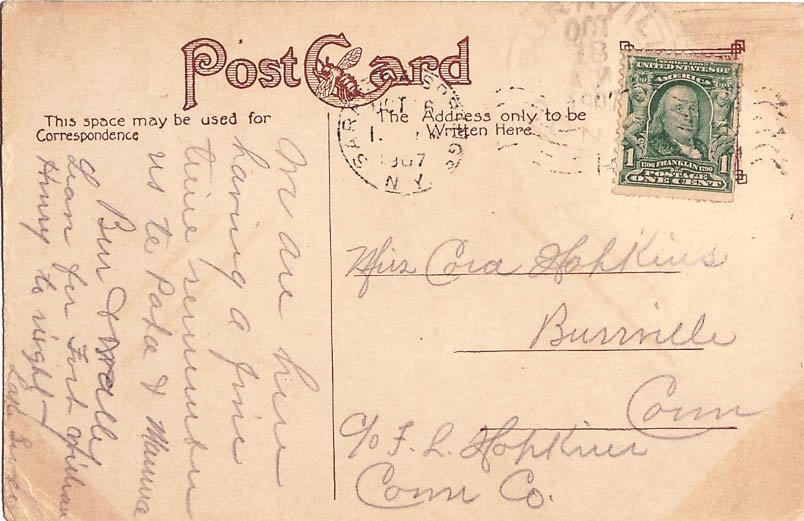 Post Card
This space may be used for
Correspondence
The Address only to be
Written Here.
SARATOGA SPRINGS
OCT 16
1907
N Y
OCT
18
1907
SERIES 1902
UNITED STATES OF
AMERICA
1706 FRANKLIN 1790
1 POSTAGE 1
ONE CENT
We are here
having a fine
time remember
us to Papa & Mamma
Burr & Wally
Lean for Fort William
Henry to night
Miss Cora Hopkins
Burrville
Conn
c/o F. L. Hopkins
Conn Co.